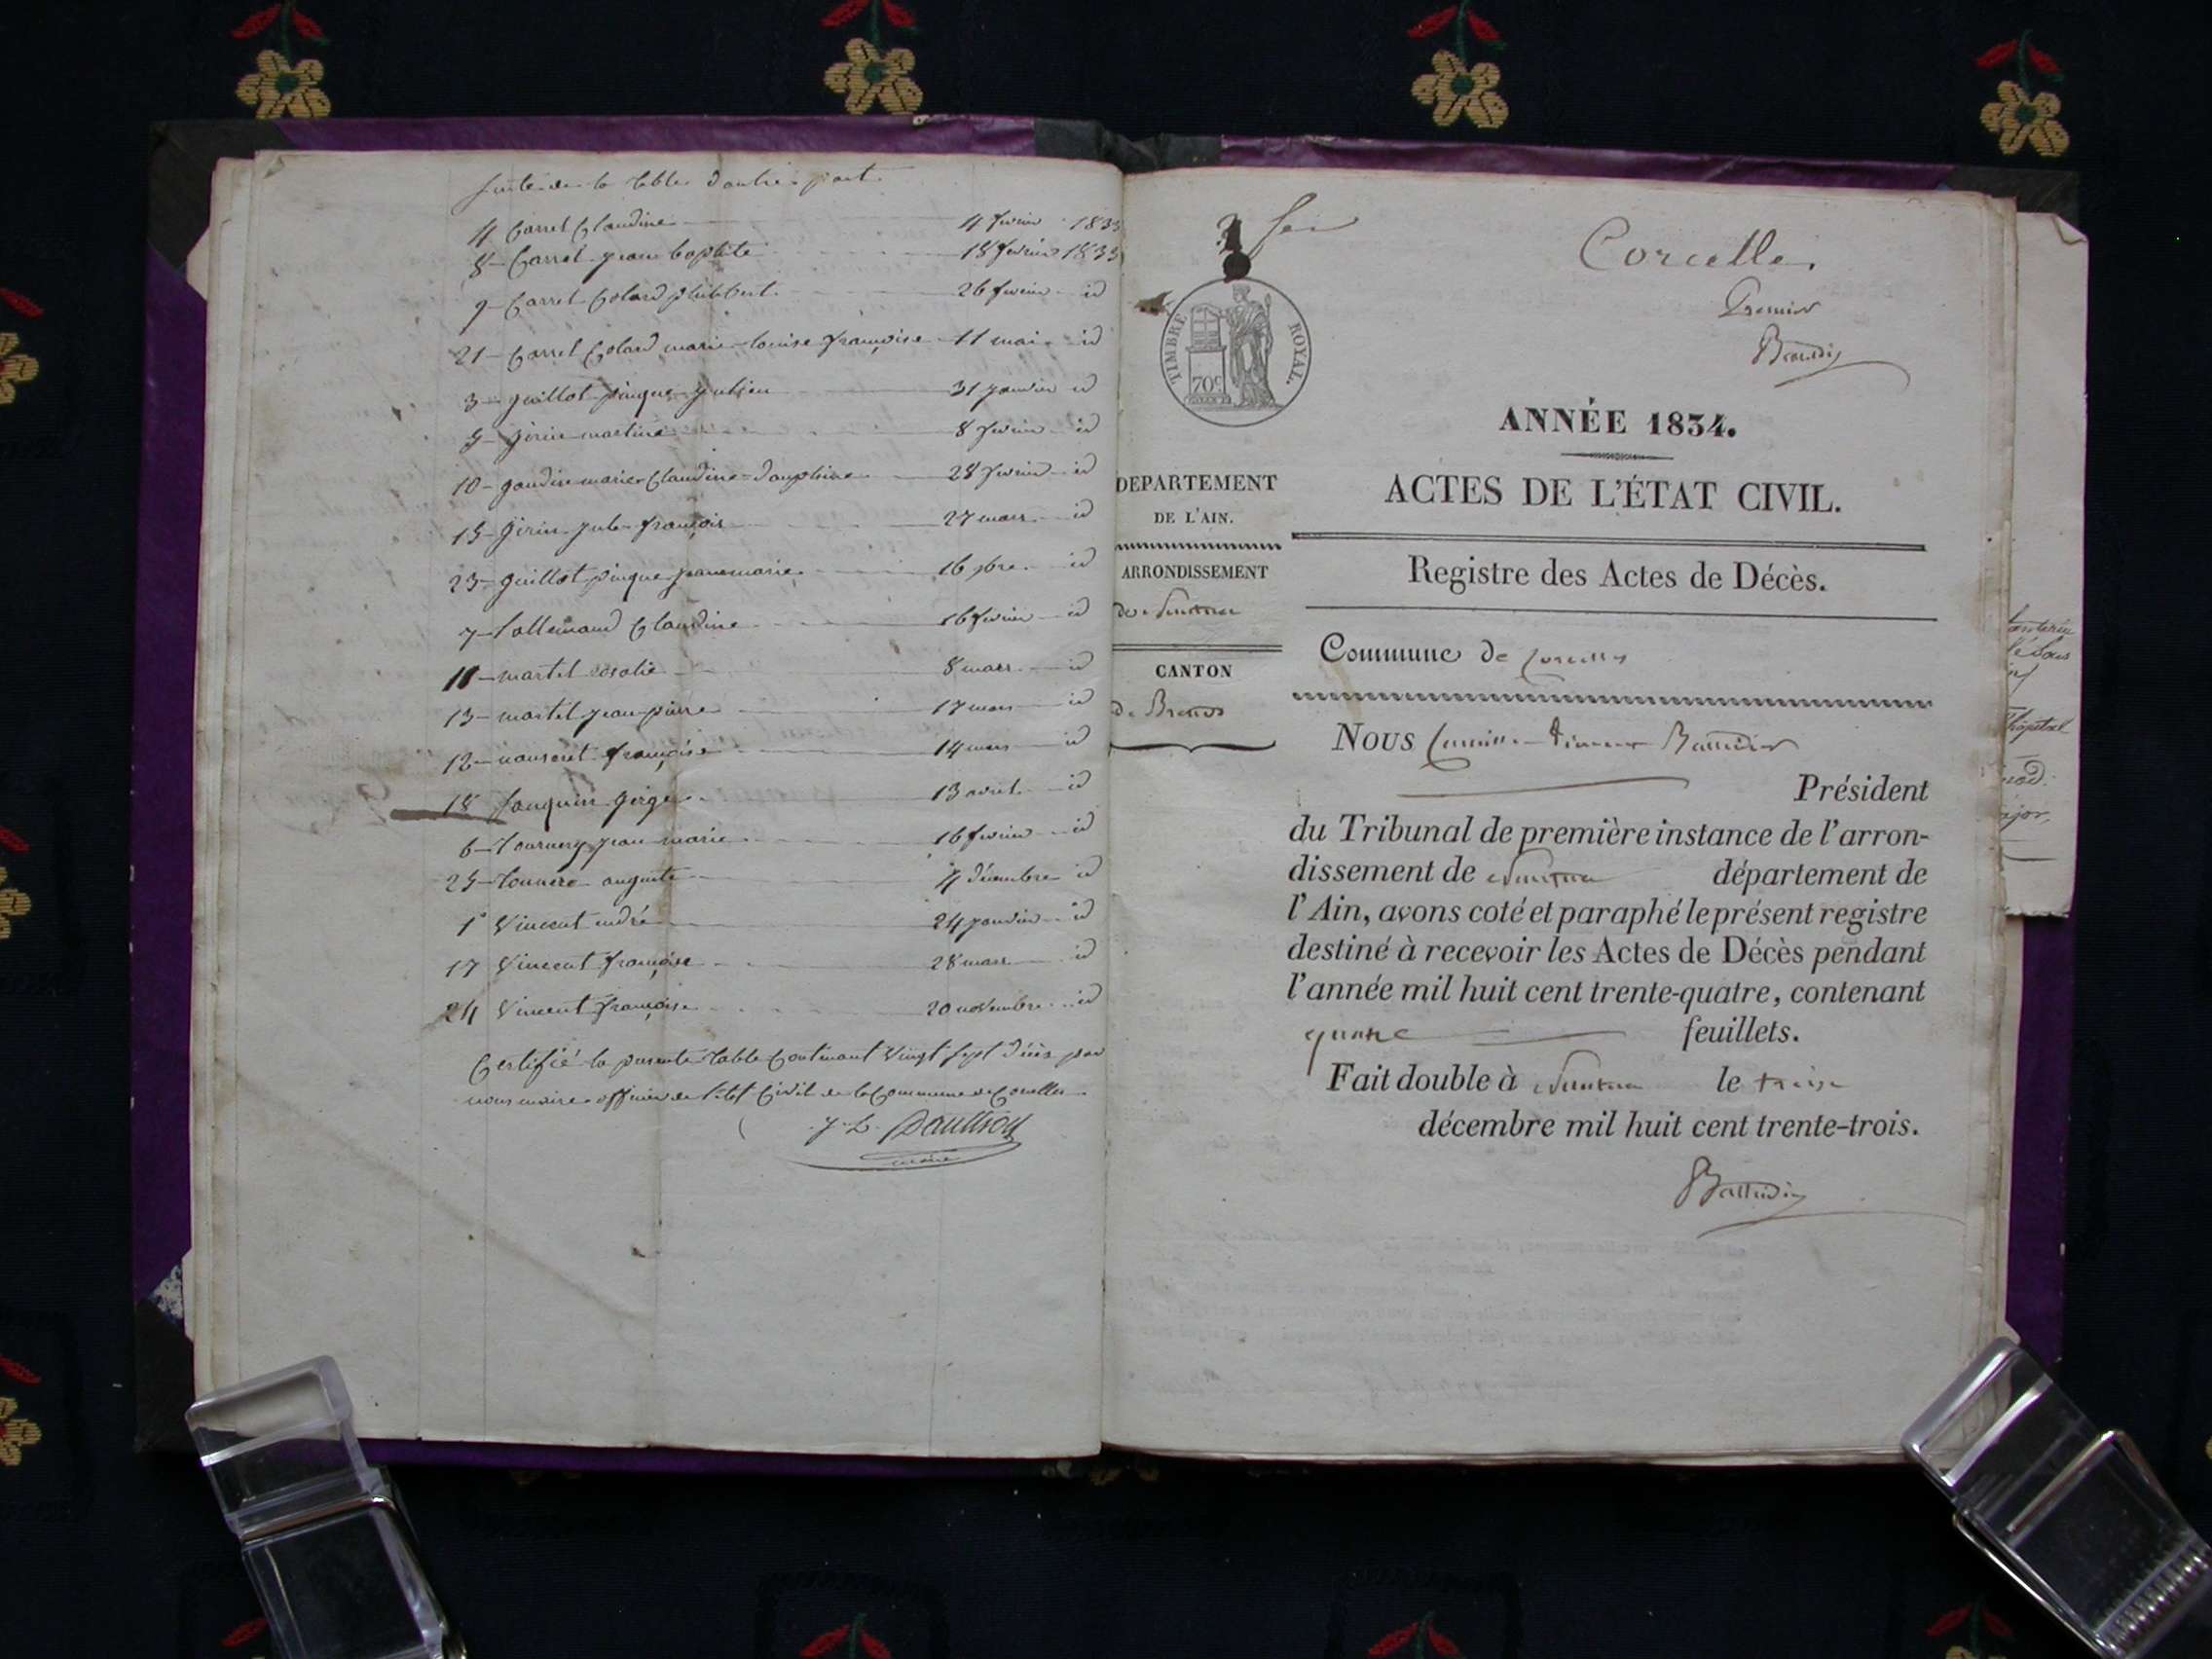 Suite de la table d'autre part
4 Carrel Claudine 4 fevrier 1833
8 Carrel jean baptiste 18 fevrier 1833
9 Carrel Colard philibert 26 fevrier id
21 Carrel Colard marie louise françoise 11 mai id
3 guillot pinque julien 31 janvier id
5 jirin martine 8 fevrier id
10 gaudin marie Claudine 28 fevrier id
15 jirin jule françois 27 mars id
23 guillot pinque jeanmarie 16 id
7 lallemand Claudine 16 fevrier id
11 martel rosalie 8 mars id
13 martel jean pierre 17 mars id
12 françoise 14 mars id
18 13 avril id
6 jean marie 16 fevrier id
25 auguste 4 décembre id
1 Vincent andré 24 janvier id
17 Vincent françoise 28 mars id
24 Vincent françoise 20 novembre id
Certifié la presente table Contenant Vingt sept décès par
nous maire officier de l'état Civil de la Commune de Corcelles
maire
TIMBRE ROYAL.
70c
Corcelles
Premier
ANNÉE 1834.
ACTES DE L'ÉTAT CIVIL.
Registre des Actes de Décès.
DEPARTEMENT
DE L'AIN.
ARRONDISSEMENT
de Nantua
CANTON
de Brenod
Commune de Corcelles
NOUS Camille
Président
du Tribunal de première instance de l'arron-
dissement de Nantua département de
l'Ain, avons coté et paraphé le présent registre
destiné à recevoir les Actes de Décès pendant
l'année mil huit cent trente-quatre, contenant
feuillets.
Fait double à Nantua le treize
décembre mil huit cent trente-trois.
l'hôpital